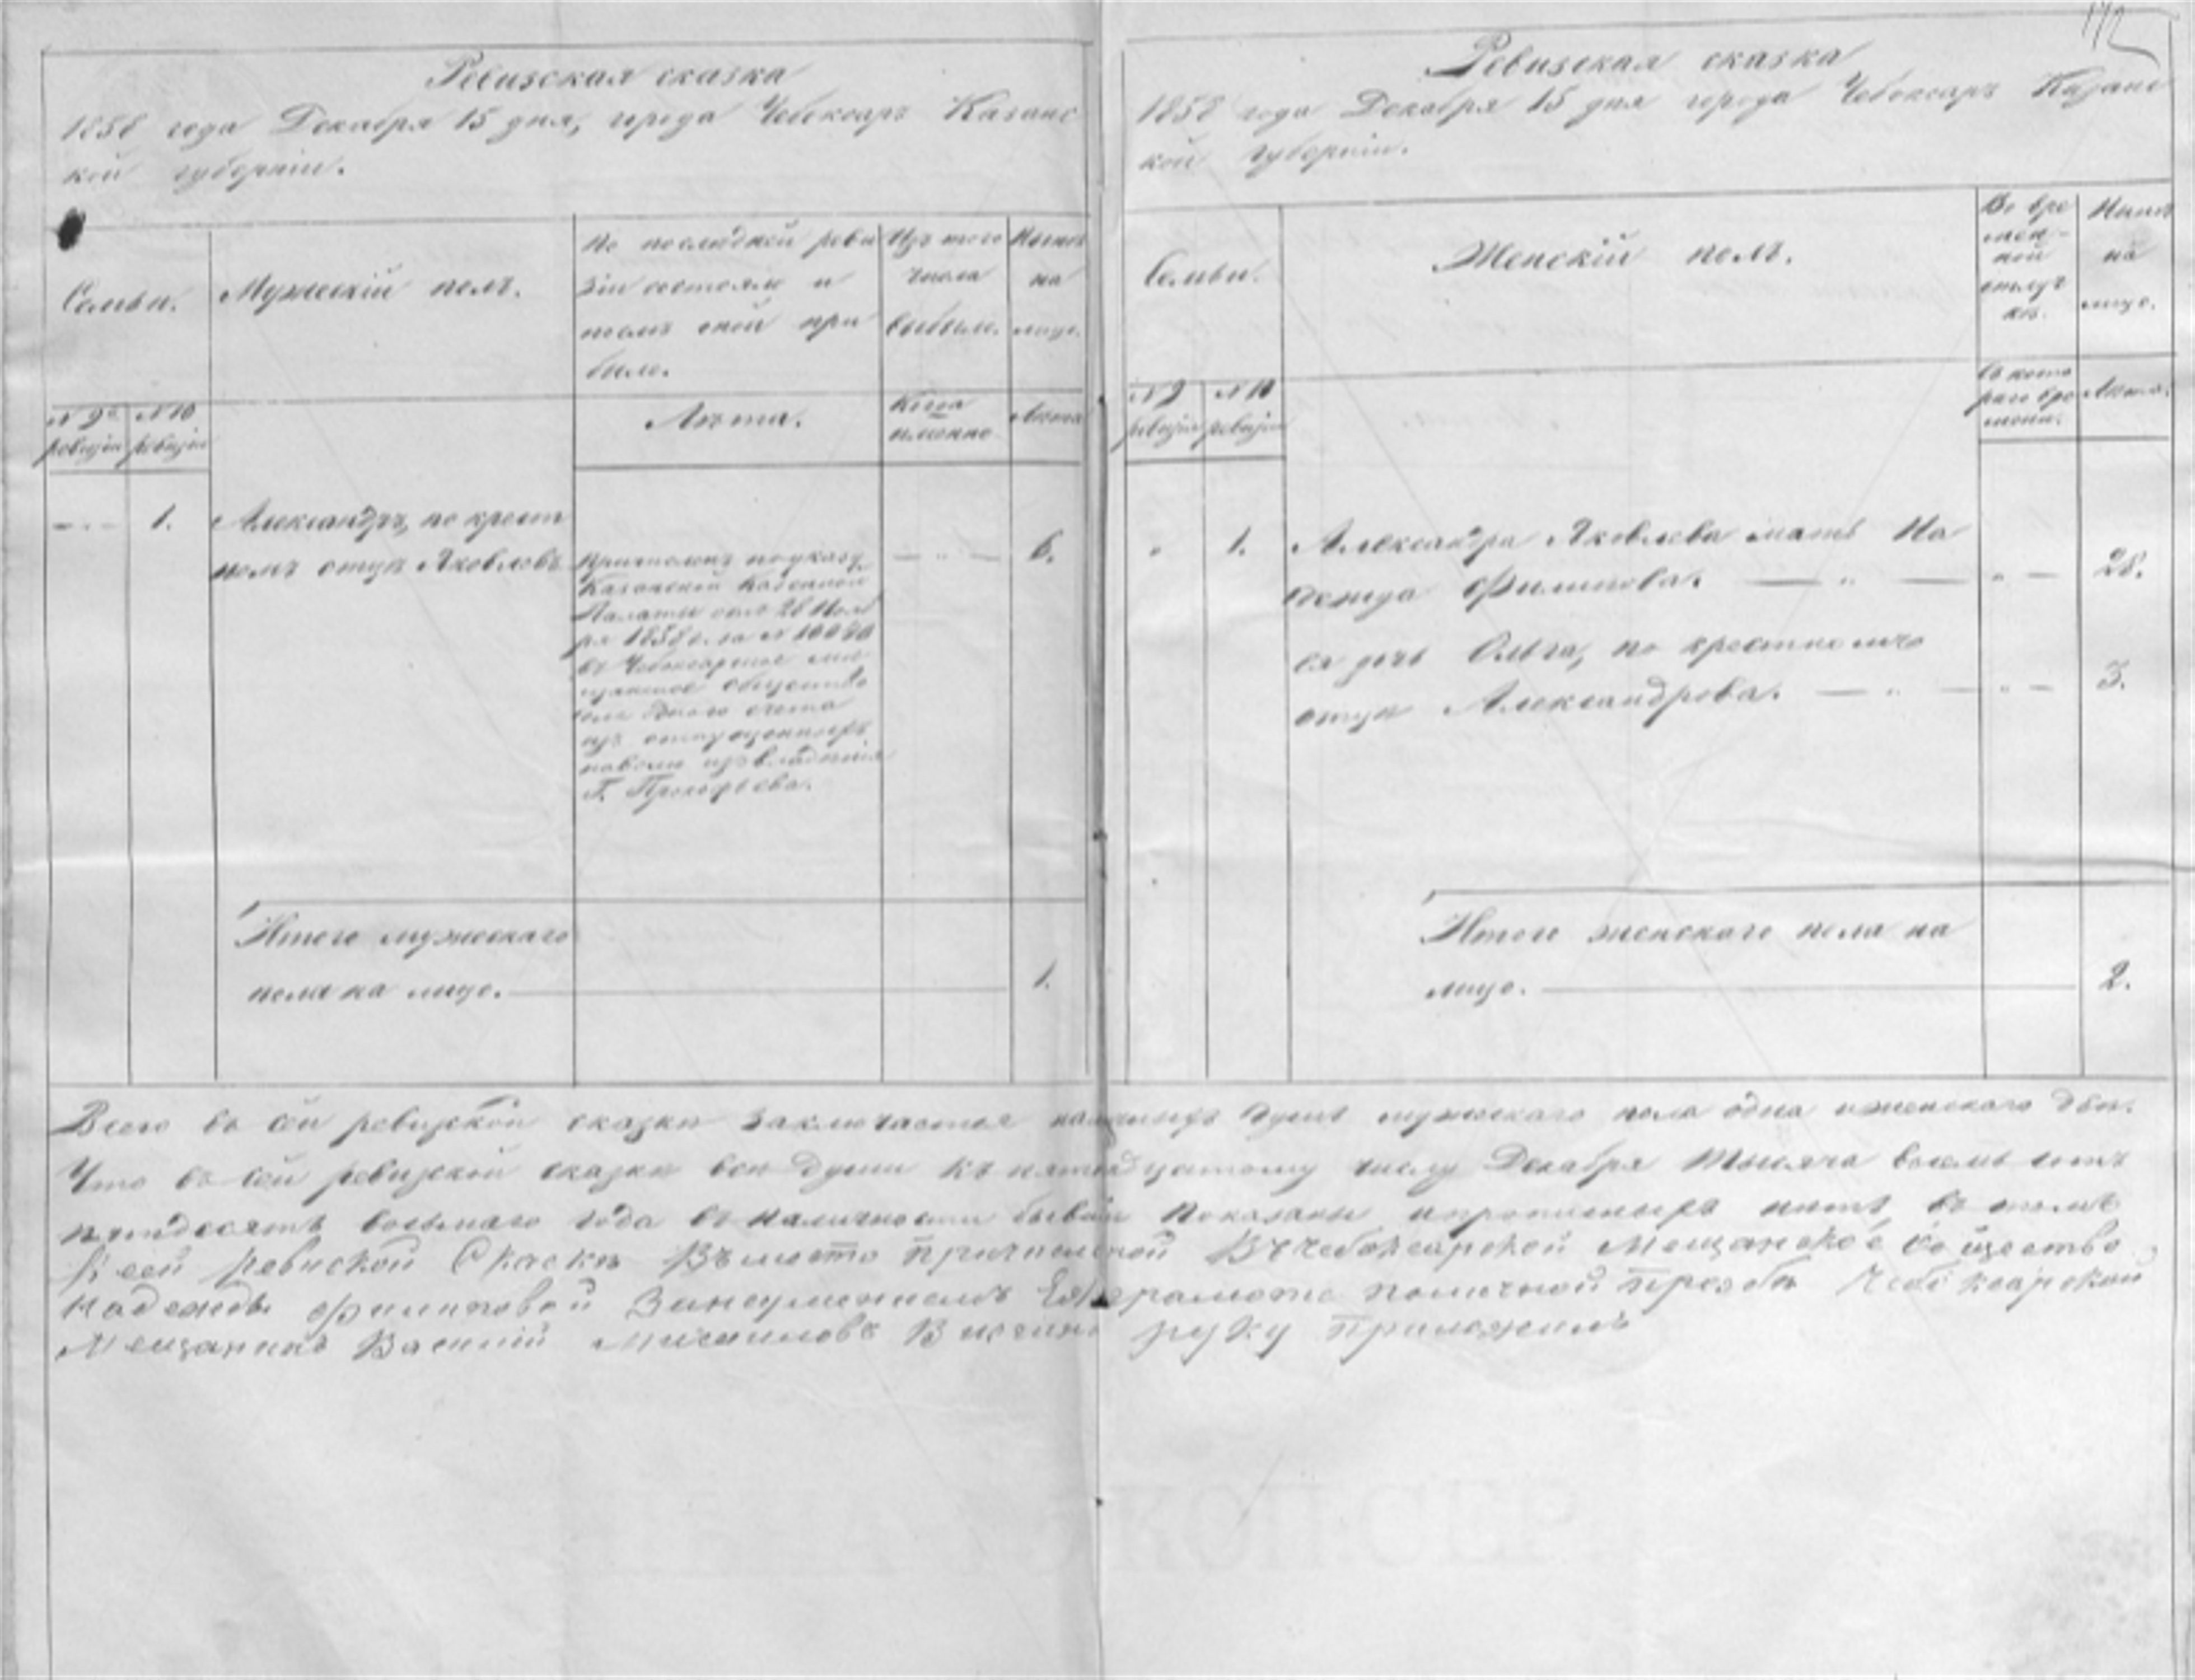 Ревизская сказка
1858 года Декабря 15 дня, города Чебоксаръ Казанс
кой губерніи.
Семьи.
Мужескій полъ.
По последней реви
зіи состояло и
послъ оной при
было.
Изъ того
числа
выбыло.
Нынъ
на
лицо.
№ 9й
ревизіи
№ 10
ревизіи
Лъта.
Когда
именно
Лъта
1.
Александръ, по крест
номъ отцъ Яковлевъ
Причисленъ по указу
Казанской Казенной
Палаты отъ 26 Нояб
ря 1858 г. за №
въ Чебоксарское мъ
щанское общество
изъ отпущенныхъ
на волю изъ владънія
Г. Прокофьева.
6.
Итого мужескаго
пола на лицо.
1.
172
Ревизская сказка
1858 года Декабря 15 дня города Чебоксаръ Казанс
кой губерніи.
Семьи.
Женскій полъ.
Во вре
мен-
ной
отлуч
къ.
Нынъ
на
лицо.
№ 9
ревизіи
№ 10
ревизіи
Съ кото
раго вре
мени.
Лъта.
1.
Александра Яковлева мать На
дежда Филипова.
28.
ея дочь Ольга, по крестномъ
отцъ Александрова.
3.
Итого женскаго пола на
лицо.
2.
Всего въ сей ревизской сказкъ заключается наличныхъ душъ мужескаго пола одна и женскаго двъ.
Что въ сей ревизской сказкъ всъ души къ пятнадцатому числу Декабря тысяча восемь сотъ
пятдесятъ восьмаго года въ наличности бывшіи показаны и прописныхъ нътъ, въ томъ
К сей ревиской Скаскъ Въмъсто причисленой Въ чебоксарской Мещанское Общество
Надежды Филиповой Занеуменіемъ Ея грамоте поличной прозбъ Чебоксарской
Мещанинъ Василій Михаиловъ руку приложилъ